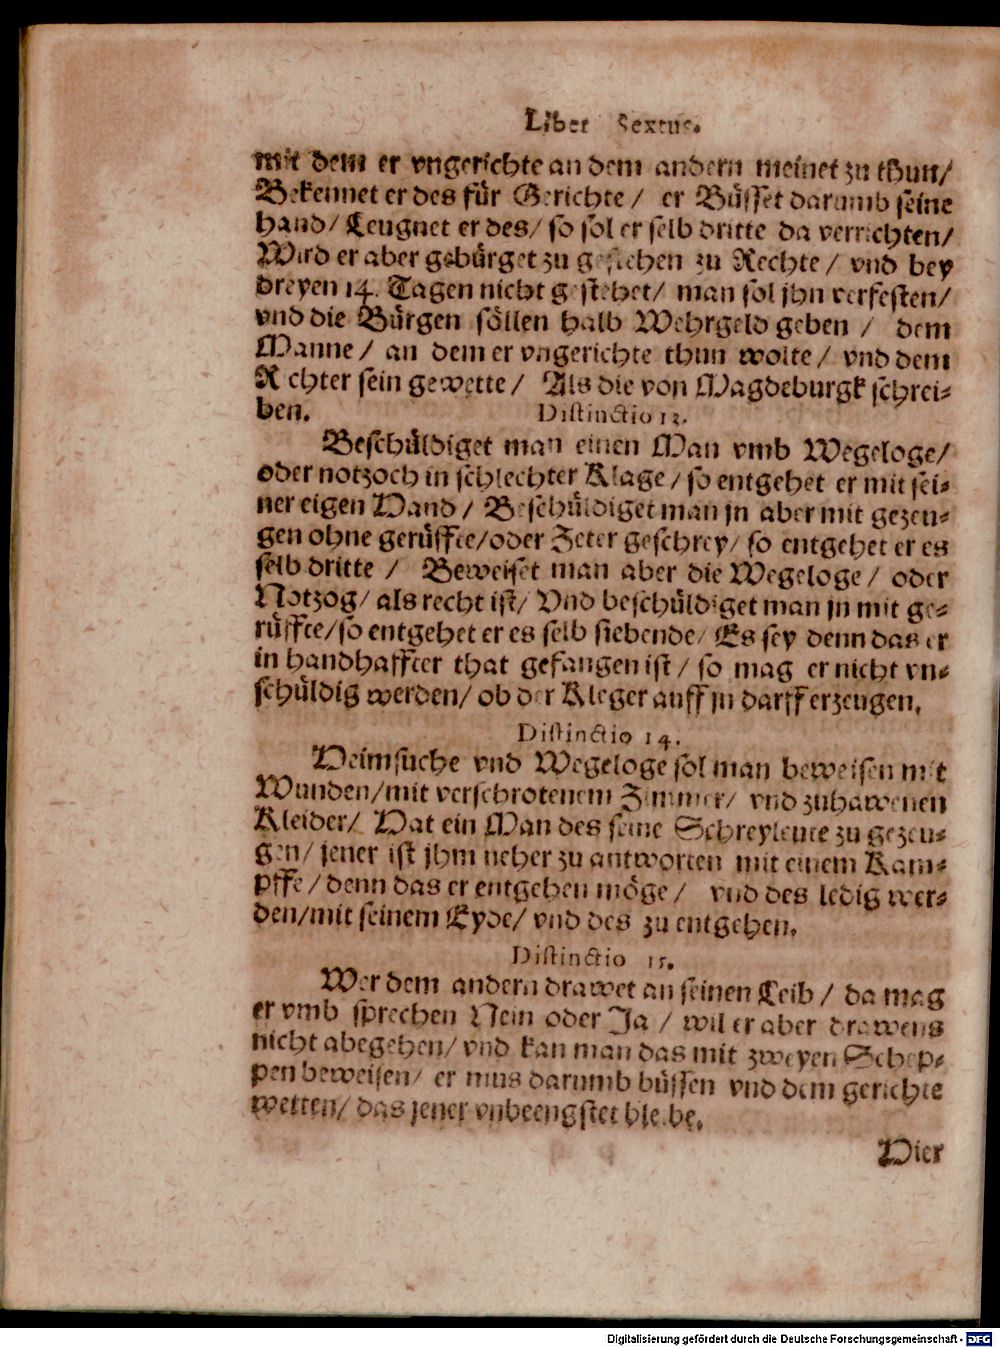 Liber Sextus.
mit dem er vngerichte an dem andern meinet zu thun/
Bekennet er des für Gerichte / er Büsset darumb seine
hand/ Leugnet er des/ so sol er selb dritte da verrichten/
Wird er aber gebürget zu gestehen zu Rechte / vnd bey
dreyen 14. Tagen nicht gestehet/ man sol jhn verfesten/
vnd die Bürgen söllen halb Wehrgeld geben / dem
Manne / an dem er vngerichte thun wolte / vnd dem
Richter sein gewette / Als die von Magdeburgk schrei-
ben.
Distinctio 13.
Beschüldiget man einen Man vmb Wegeloge/
oder notzoch in schlechter Klage / so entgehet er mit sei-
ner eigen Hand / Beschüldiget man jn aber mit gezeu-
gen ohne gerüffte/oder Zeter geschrey/ so entgehet er es
selb dritte / Beweiset man aber die Wegeloge / oder
Notzog/ als recht ist/ Vnd beschüldiget man jn mit ge-
rüffte/so entgehet er es selb siebende/ Es sey denn das er
in handhaffter that gefangen ist / so mag er nicht vn-
schüldig werden/ ob der Kleger auff jn darff erzeugen.
Distinctio 14.
Heimsuche vnd Wegeloge sol man beweisen mit
Wunden/mit verschrotenem Zimmer/ vnd zuhawenen
Kleider/ Hat ein Man des seine Schreyleute zu gezeu-
gen/ jener ist jhm neher zu antworten mit einem Kam-
pffe / denn das er entgehen möge / vnd des ledig wer-
den/mit seinem Eyde/ vnd des zu entgehen.
Distinctio 15.
Wer dem andern drawet an seinen Leib / da mag
er vmb sprechen Nein oder Ja / wil er aber drawens
nicht abegehen/ vnd kan man das mit zweyen Schep-
pen beweisen/ er mus darumb büssen vnd dem gerichte
wetten/ das jener vnbeengstet bleibe.
Hier
Digitalisierung gefördert durch die Deutsche Forschungsgemeinschaft - DFG